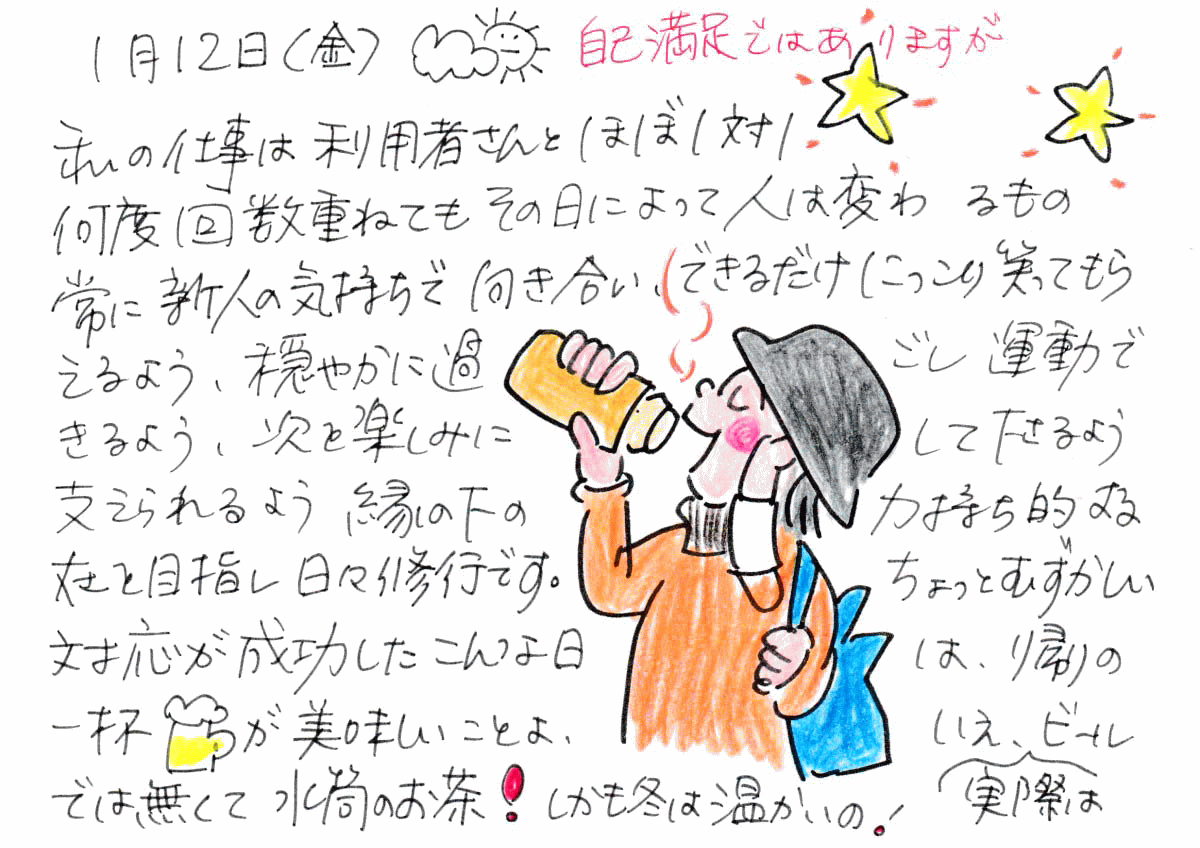 1月12日(金) 自己満足ではありますが
私の仕事は利用者さんとほぼ1対1
何度1回数重ねてもその日によって人は変わるもの
常に新人の気持ちで向き合い、できるだけにっこり笑ってもら
えるよう、穏やかに過ごし運動で
きるよう、次を楽しみにして下さるよう
支えられるよう縁の下の力持ち的する
在を目指し日々修行です。ちょっとむずかしい
対応が成功したこんな日は、帰りの
一杯が美味しいことよ、いえ、ビール
では無くて水筒のお茶!しかも冬は温かいの!実際は